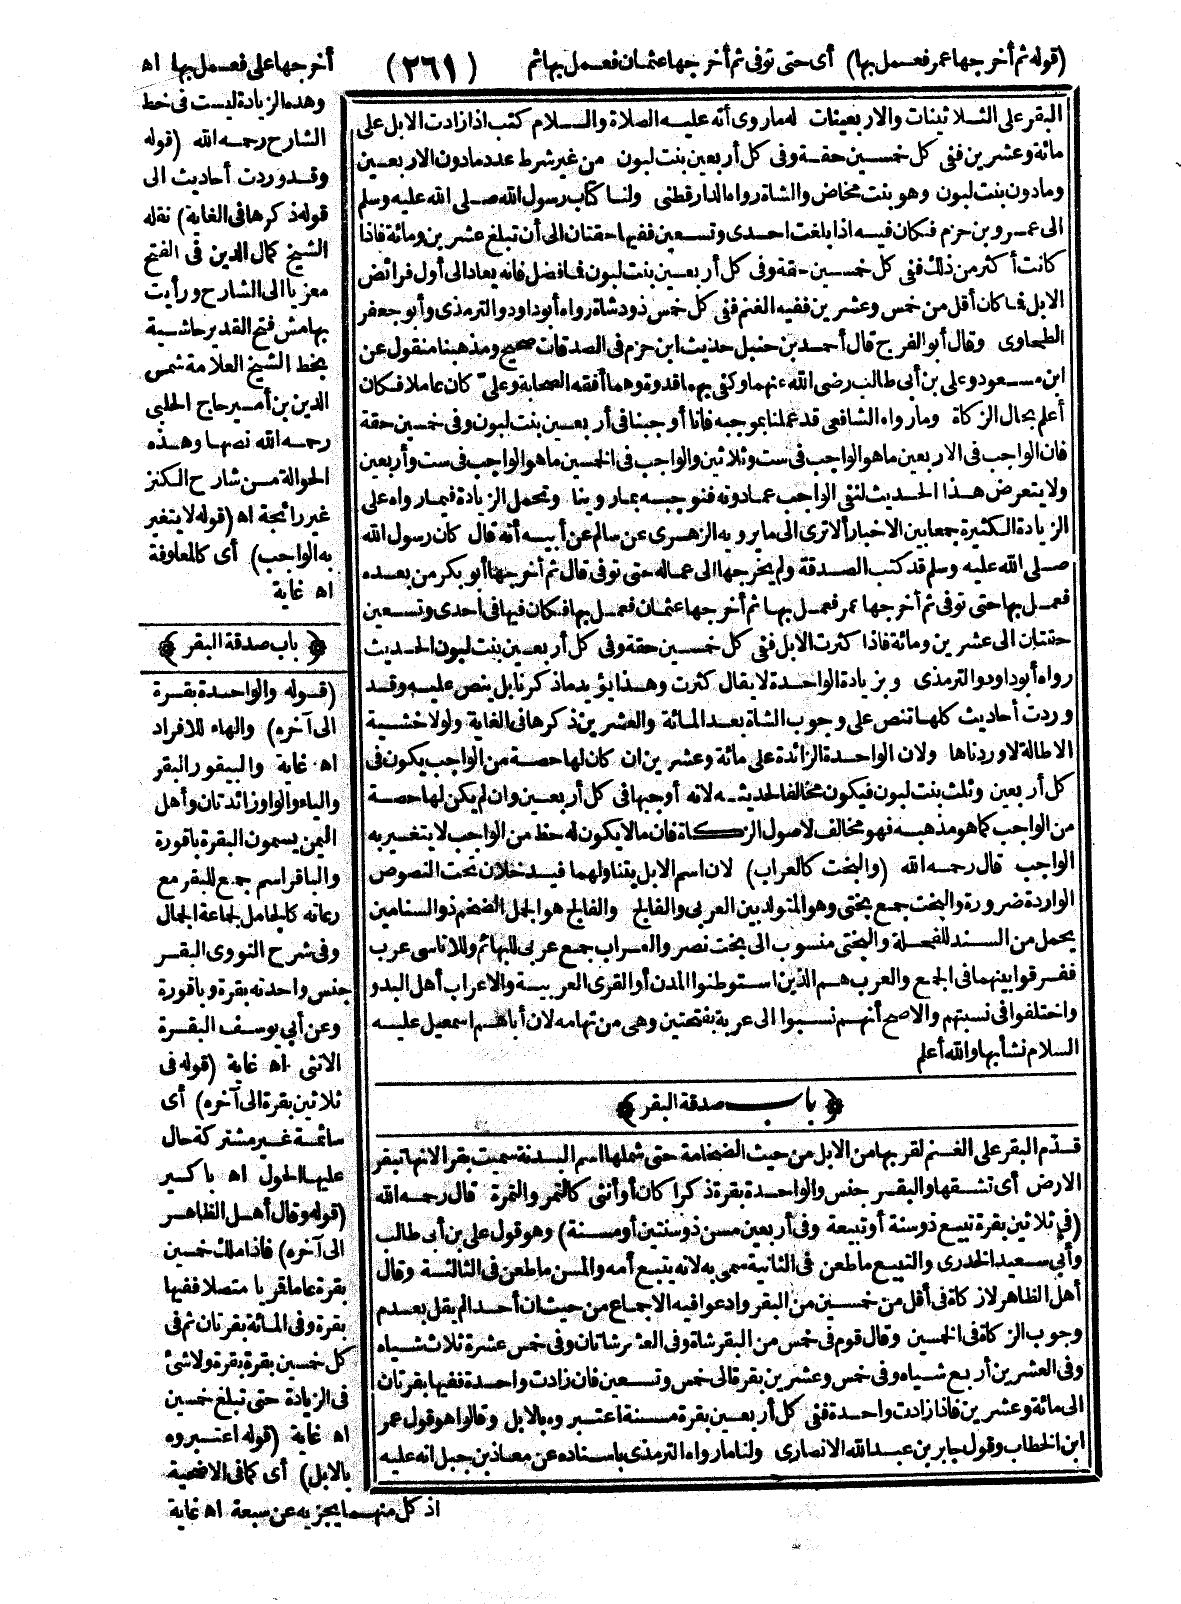 (قوله ثم أخرجها عمر فعمل بها) أى حتى توفى ثم أخرجها عثمان فعمل بها ثم
(٢٦١)
أخرجها على فعمل بها اه
وهذه الزيادة ليست فى خط
الشارح رحمه الله (قوله
وقد وردت أحاديث الى
قوله ذكرها فى الغاية) نقله
الشيخ كمال الدين فى الفتح
معزيا الى الشارح ورأيت
بهامش فتح القدير حاشية
بخط الشيخ العلامة شمس
الدين بن أمير حاج الحلبى
رحمه الله نصها وهذه
الحوالة من شارح الكنز
غير رائجة اه (قوله لا يتغير
به الواجب) أى كالمعلوفة
اه غاية
﴿باب صدقة البقر﴾
(قوله والواحدة بقرة
الى آخره) والهاء للافراد
اه غاية والبيقور البقر
والياء والواو زائدتان وأهل
اليمن يسمون البقرة باقورة
والباقر اسم جمع للبقر مع
رعاته كالجامل لجماعة الجمال
وفى شرح النووى البقر
جنس واحدته بقرة وباقورة
وعن أبي يوسف البقرة
الانثى اه غاية (قوله فى
ثلاثين بقرة الى آخره) أى
سائمة غير مشتركة حال
عليها الحول اه باكير
(قوله وقال أهل الظاهر
الى آخره) فاذا ملك خمسين
بقرة عاما قمريا متصلا ففيها
بقرة وفى المائة بقرتان ثم فى
كل خمسين بقرة بقرة ولا شئ
فى الزيادة حتى تبلغ خمسين
اه غاية (قوله اعتبروه
بالابل) أى كما فى الاضحية
اذ كل منهما يجزيه عن سبعة اه غاية
البقر على الثلاثينات والاربعينات له ما روى أنه عليه الصلاة والسلام كتب اذا زادت الابل على
مائة وعشرين ففى كل خمسين حقة وفى كل أربعين بنت لبون من غير شرط عدد مادون الاربعين
ومادون بنت لبون وهو بنت مخاض والشاة رواه الدارقطنى ولنا كتاب رسول الله صلى الله عليه وسلم
الى عمرو بن حزم فكان فيه اذا بلغت احدى وتسعين ففيها حقتان الى أن تبلغ عشرين ومائة فاذا
كانت أكثر من ذلك ففى كل خمسين حقة وفى كل أربعين بنت لبون فما فضل فانه يعاد الى أول فرائض
الابل فما كان أقل من خمس وعشرين ففيه الغنم ففى كل خمس ذود شاة رواه أبو داود والترمذى وأبو جعفر
الطحاوى وقال أبو الفرج قال أحمد بن حنبل حديث ابن حزم فى الصدقات صحيح ومذهبنا منقول عن
ابن مسعود وعلى بن أبى طالب رضى الله عنهما وكفى بهما قدوة وهما أفقه الصحابة وعلىّ كان عاملا فكان
أعلم بحال الزكاة وما رواه الشافعى قد عملنا بموجبه فانا أوجبنا فى أربعين بنت لبون وفى خمسين حقة
فان الواجب فى الاربعين ما هو الواجب فى ست وثلاثين والواجب فى الخمسين ما هو الواجب فى ست وأربعين
ولا يتعرض هذا الحديث لنفى الواجب عما دونه فنوجبه بما روينا وتحمل الزيادة فيما رواه على
الزيادة الكثيرة جمعا بين الاخبار ألا ترى الى ما يرويه الزهرى عن سالم عن أبيه أنه قال كان رسول الله
صلى الله عليه وسلم قد كتب الصدقة ولم يخرجها الى عماله حتى توفى قال ثم أخرجها أبو بكر من بعده
فعمل بها حتى توفى ثم أخرجها عمر فعمل بها ثم أخرجها عثمان فعمل بها فكان فيها فى احدى وتسعين
حقتان الى عشرين ومائة فاذا كثرت الابل ففى كل خمسين حقة وفى كل أربعين بنت لبون الحديث
رواه أبو داود والترمذى وبزيادة الواحدة لا يقال كثرت وهذا يؤيد ما ذكرنا بل ينص عليه وقد
وردت أحاديث كلها تنص على وجوب الشاة بعد المائة والعشرين ذكرها فى الغاية ولولا خشية
الاطالة لاوردناها ولان الواحدة الزائدة على مائة وعشرين ان كان لها حصة من الواجب يكون فى
كل أربعين وثلث بنت لبون فيكون مخالفا لحديثه لانه أوجبها فى كل أربعين وان لم يكن لها حصة
من الواجب كما هو مذهبه فهو مخالف لاصول الزكاة فان ما لا يكون له حظ من الواجب لا يتغير به
الواجب قال رحمه الله (والبخت كالعراب) لان اسم الابل يتناولهما فيدخلان تحت النصوص
الواردة ضرورة والبخت جمع بختى وهو المتولد بين العربى والفالج والفالج هو الجمل الضخم ذو السنامين
يحمل من السند للفحلة والبختى منسوب الى بخت نصر والعراب جمع عربى للبهائم وللاناسى عرب
ففرقوا بينهما فى الجمع والعرب هم الذين استوطنوا المدن أو القرى العربية والاعراب أهل البدو
واختلفوا فى نسبتهم والاصح أنهم نسبوا الى عربة بفتحتين وهى من تهامه لان أباهم اسمعيل عليه
السلام نشأ بها والله أعلم
﴿باب صدقة البقر﴾
قدّم البقر على الغنم لقربها من الابل من حيث الضخامة حتى شملها اسم البدنة سميت بقرا لانها تبقر
الارض أى تشقها والبقر جنس والواحدة بقرة ذكرا كان أو أنثى كالتمر والتمرة قال رحمه الله
(فى ثلاثين بقرة تبيع ذو سنة أو تبيعة وفى أربعين مسن ذو سنتين أو مسنة) وهو قول على بن أبى طالب
وأبى سعيد الخدرى والتبيع ما طعن فى الثانية سمى به لانه يتبع أمه والمسن ما طعن فى الثالثة وقال
أهل الظاهر لا زكاة فى أقل من خمسين من البقر وادعوا فيه الاجماع من حيث ان أحدا لم يقل بعدم
وجوب الزكاة فى الخمسين وقال قوم فى خمس من البقر شاة وفى العشر شاتان وفى خمس عشرة ثلاث شياه
وفى العشرين أربع شياه وفى خمس وعشرين بقرة الى خمس وتسعين فان زادت واحدة ففيها بقرتان
الى مائة وعشرين فاذا زادت واحدة ففى كل أربعين بقرة مسنة اعتبروه بالابل وقالوا هو قول عمر
ابن الخطاب وقول جابر بن عبد الله الانصارى ولنا ما رواه الترمذى باسناده عن معاذ بن جبل انه عليه